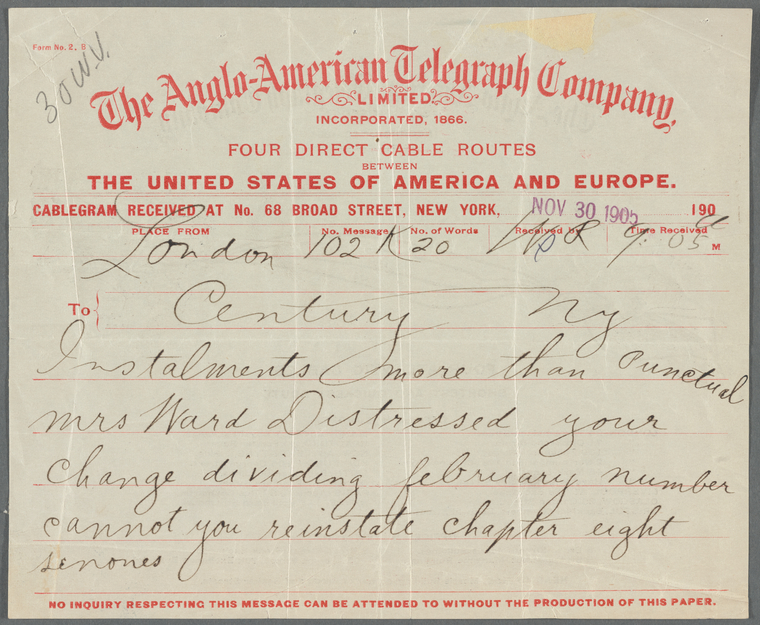 Form No. 2, B
30 W.V.
The Anglo-American Telegraph Company,
LIMITED.
INCORPORATED, 1866.
FOUR DIRECT CABLE ROUTES
BETWEEN
THE UNITED STATES OF AMERICA AND EUROPE.
CABLEGRAM RECEIVED AT No. 68 BROAD STREET, NEW YORK, NOV 30 1905 190
PLACE FROM No. Message No. of Words Received by Time Received
London 102 K 20 9:05 M
To Century Ny
Instalments more than Punctual
mrs Ward Distressed your
change dividing february number
cannot you reinstate chapter eight
senones
NO INQUIRY RESPECTING THIS MESSAGE CAN BE ATTENDED TO WITHOUT THE PRODUCTION OF THIS PAPER.